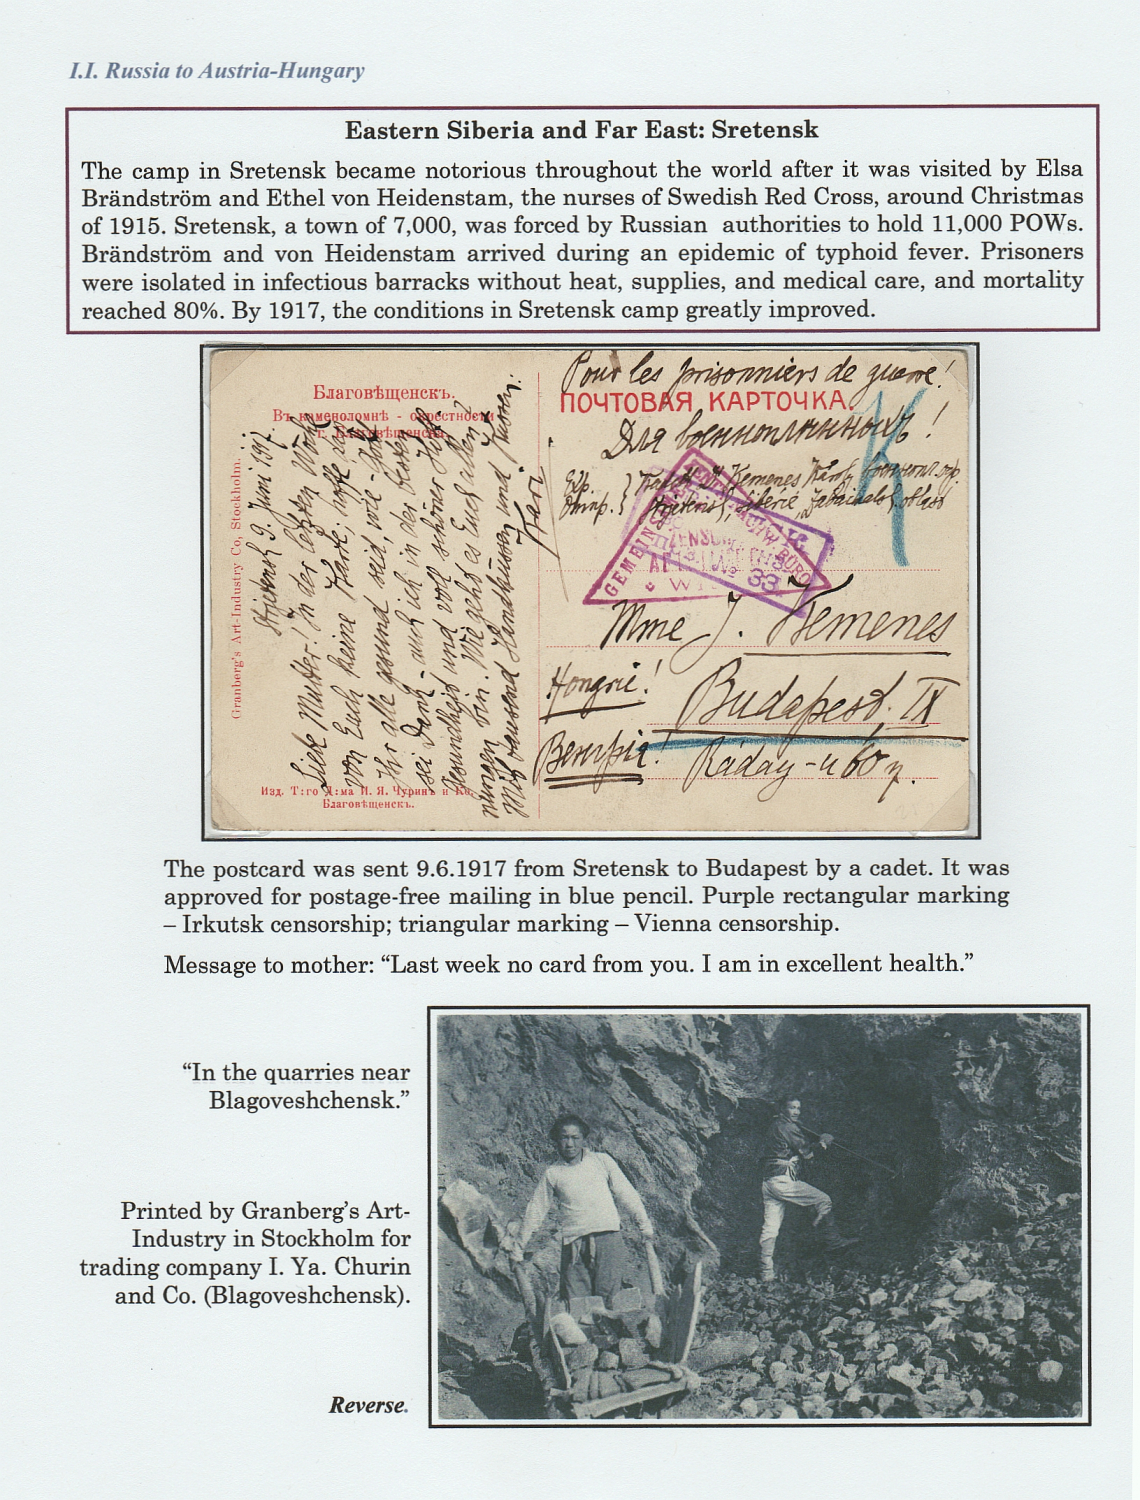 I.I. Russia to Austria-Hungary
Eastern Siberia and Far East: Sretensk
The camp in Sretensk became notorious throughout the world after it was visited by Elsa
Brändström and Ethel von Heidenstam, the nurses of Swedish Red Cross, around Christmas
of 1915. Sretensk, a town of 7,000, was forced by Russian authorities to hold 11,000 POWs.
Brändström and von Heidenstam arrived during an epidemic of typhoid fever. Prisoners
were isolated in infectious barracks without heat, supplies, and medical care, and mortality
reached 80%. By 1917, the conditions in Sretensk camp greatly improved.
Благовѣщенскъ.
Въ каменоломнѣ - окрестности
г. Благовѣщенска.
Granberg's Art-Industry Co, Stockholm.
Sretensk 9. Juni 1917.
Liebe Mutter! In der letzten Woche
von Euch keine Karte; hoffe dass
Ihr alle gesund seid, wie - Gott
sei Dank - auch ich in der besten
Gesundheit und voll schöner Hoff-
nungen bin. Wie geht es Euch allen?
Mit tausend Handküssen und Küssen:
Karl
Изд. Т-го Д-ма И. Я. Чуринъ и Ко
Благовѣщенскъ.
Pour les prisonniers de guerre!
ПОЧТОВАЯ КАРТОЧКА.
Для военноплѣнныхъ!
Kemenes Karl
Sretensk, Siberie
GEMEINSAMES ZENTRALNACHW. BÜRO
ZENSUR
WIEN
№ 33
Mme J. Kemenes
Hongrie!
Budapest. IX
Венгрія!
Ráday-u 60
The postcard was sent 9.6.1917 from Sretensk to Budapest by a cadet. It was
approved for postage-free mailing in blue pencil. Purple rectangular marking
– Irkutsk censorship; triangular marking – Vienna censorship.
Message to mother: “Last week no card from you. I am in excellent health.”
“In the quarries near
Blagoveshchensk.”
Printed by Granberg's Art-
Industry in Stockholm for
trading company I. Ya. Churin
and Co. (Blagoveshchensk).
Reverse.